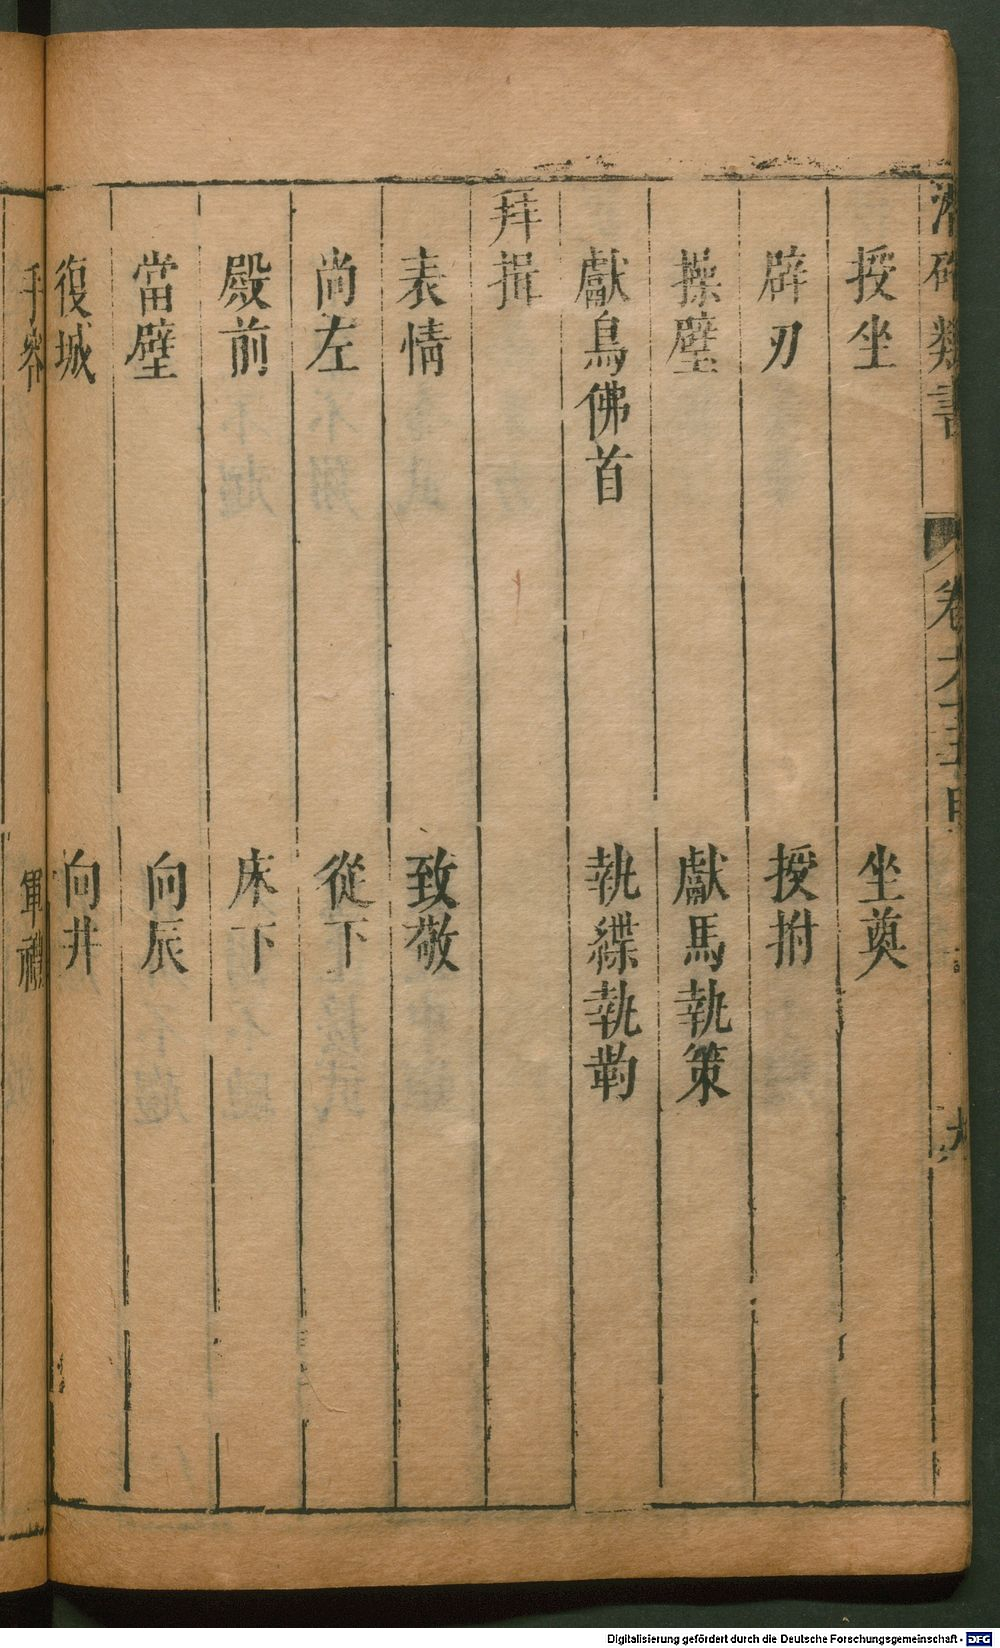 類書
卷六
授坐 坐奠
辟刃 授拊
操璧 獻馬執策
獻鳥佛首 執緤執靮
拜揖
表情 致敬
尚左 從下
殿前 床下
當壁 向辰
復城 向井
手容 軍禮
Digitalisierung gefördert durch die Deutsche Forschungsgemeinschaft - DFG